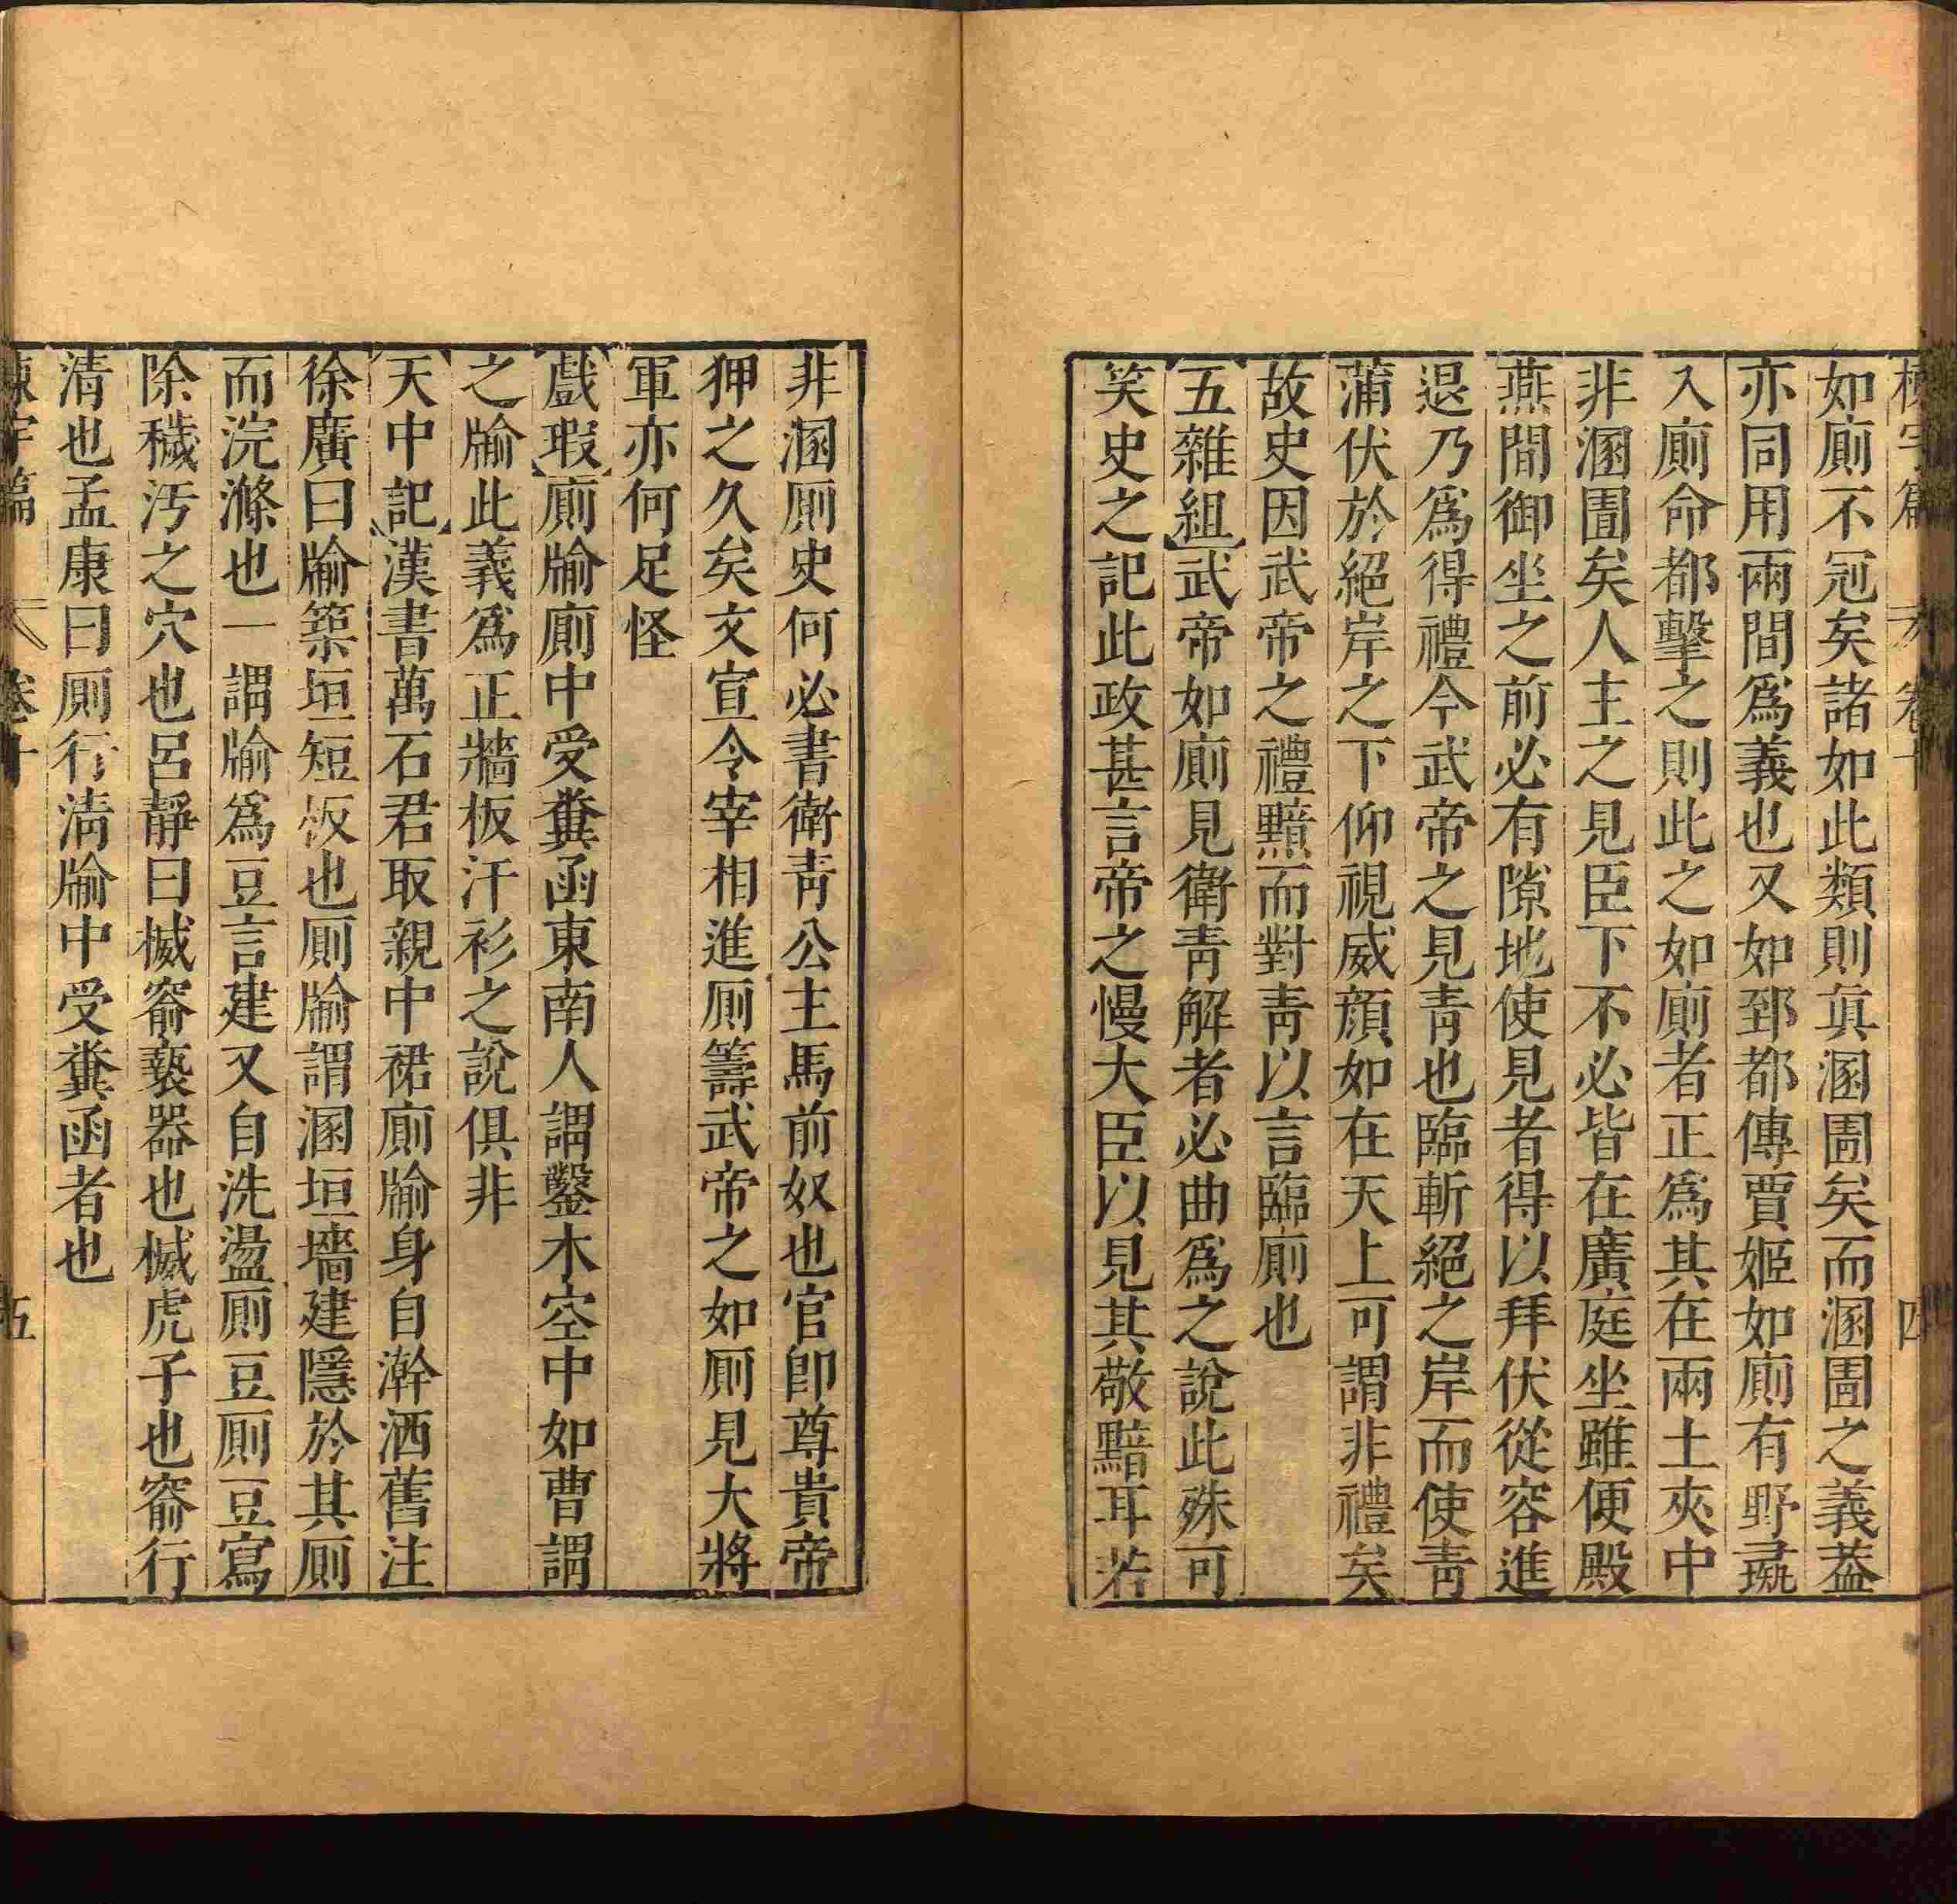 如廁不冠矣諸如此類則真溷圊矣而溷圊之義葢
亦同用兩間爲義也又如郅都傳賈姬如廁有野彘
入廁命都擊之則此之如廁者正爲其在兩土夾中
非溷圊矣人主之見臣下不必皆在廣庭坐雖便殿
燕間御坐之前必有隙地使見者得以拜伏從容進
退乃爲得禮今武帝之見青也臨斬絕之岸而使青
蒲伏於絕岸之下仰視威顔如在天上可謂非禮矣
故史因武帝之禮黯而對青以言臨廁也
五雜組武帝如廁見衛青解者必曲爲之說此殊可
笑史之記此政甚言帝之慢大臣以見其敬黯耳若
非溷厠史何必書衛青公主馬前奴也官卽尊貴帝
狎之久矣文宣令宰相進厠籌武帝之如厠見大將
軍亦何足怪
戲瑕廁牏廁中受糞函東南人謂鑿木空中如曹謂
之牏此義爲正牆板汗衫之說俱非
天中記漢書萬石君取親中裙廁牏身自澣洒舊注
徐廣曰牏築垣短板也厠牏謂溷垣墻建隱於其厠
而浣滌也一謂牏爲豆言建又自洗盪厠豆厠豆寫
除穢汚之穴也呂靜曰楲窬褻器也楲虎子也窬行
清也孟康曰厠行清牏中受糞函者也
卷十
五